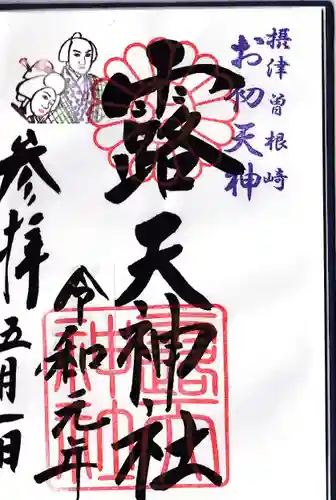 摂津曽根崎
お初天神
露天神社
令和元年
五月一日
参拝
露天神社